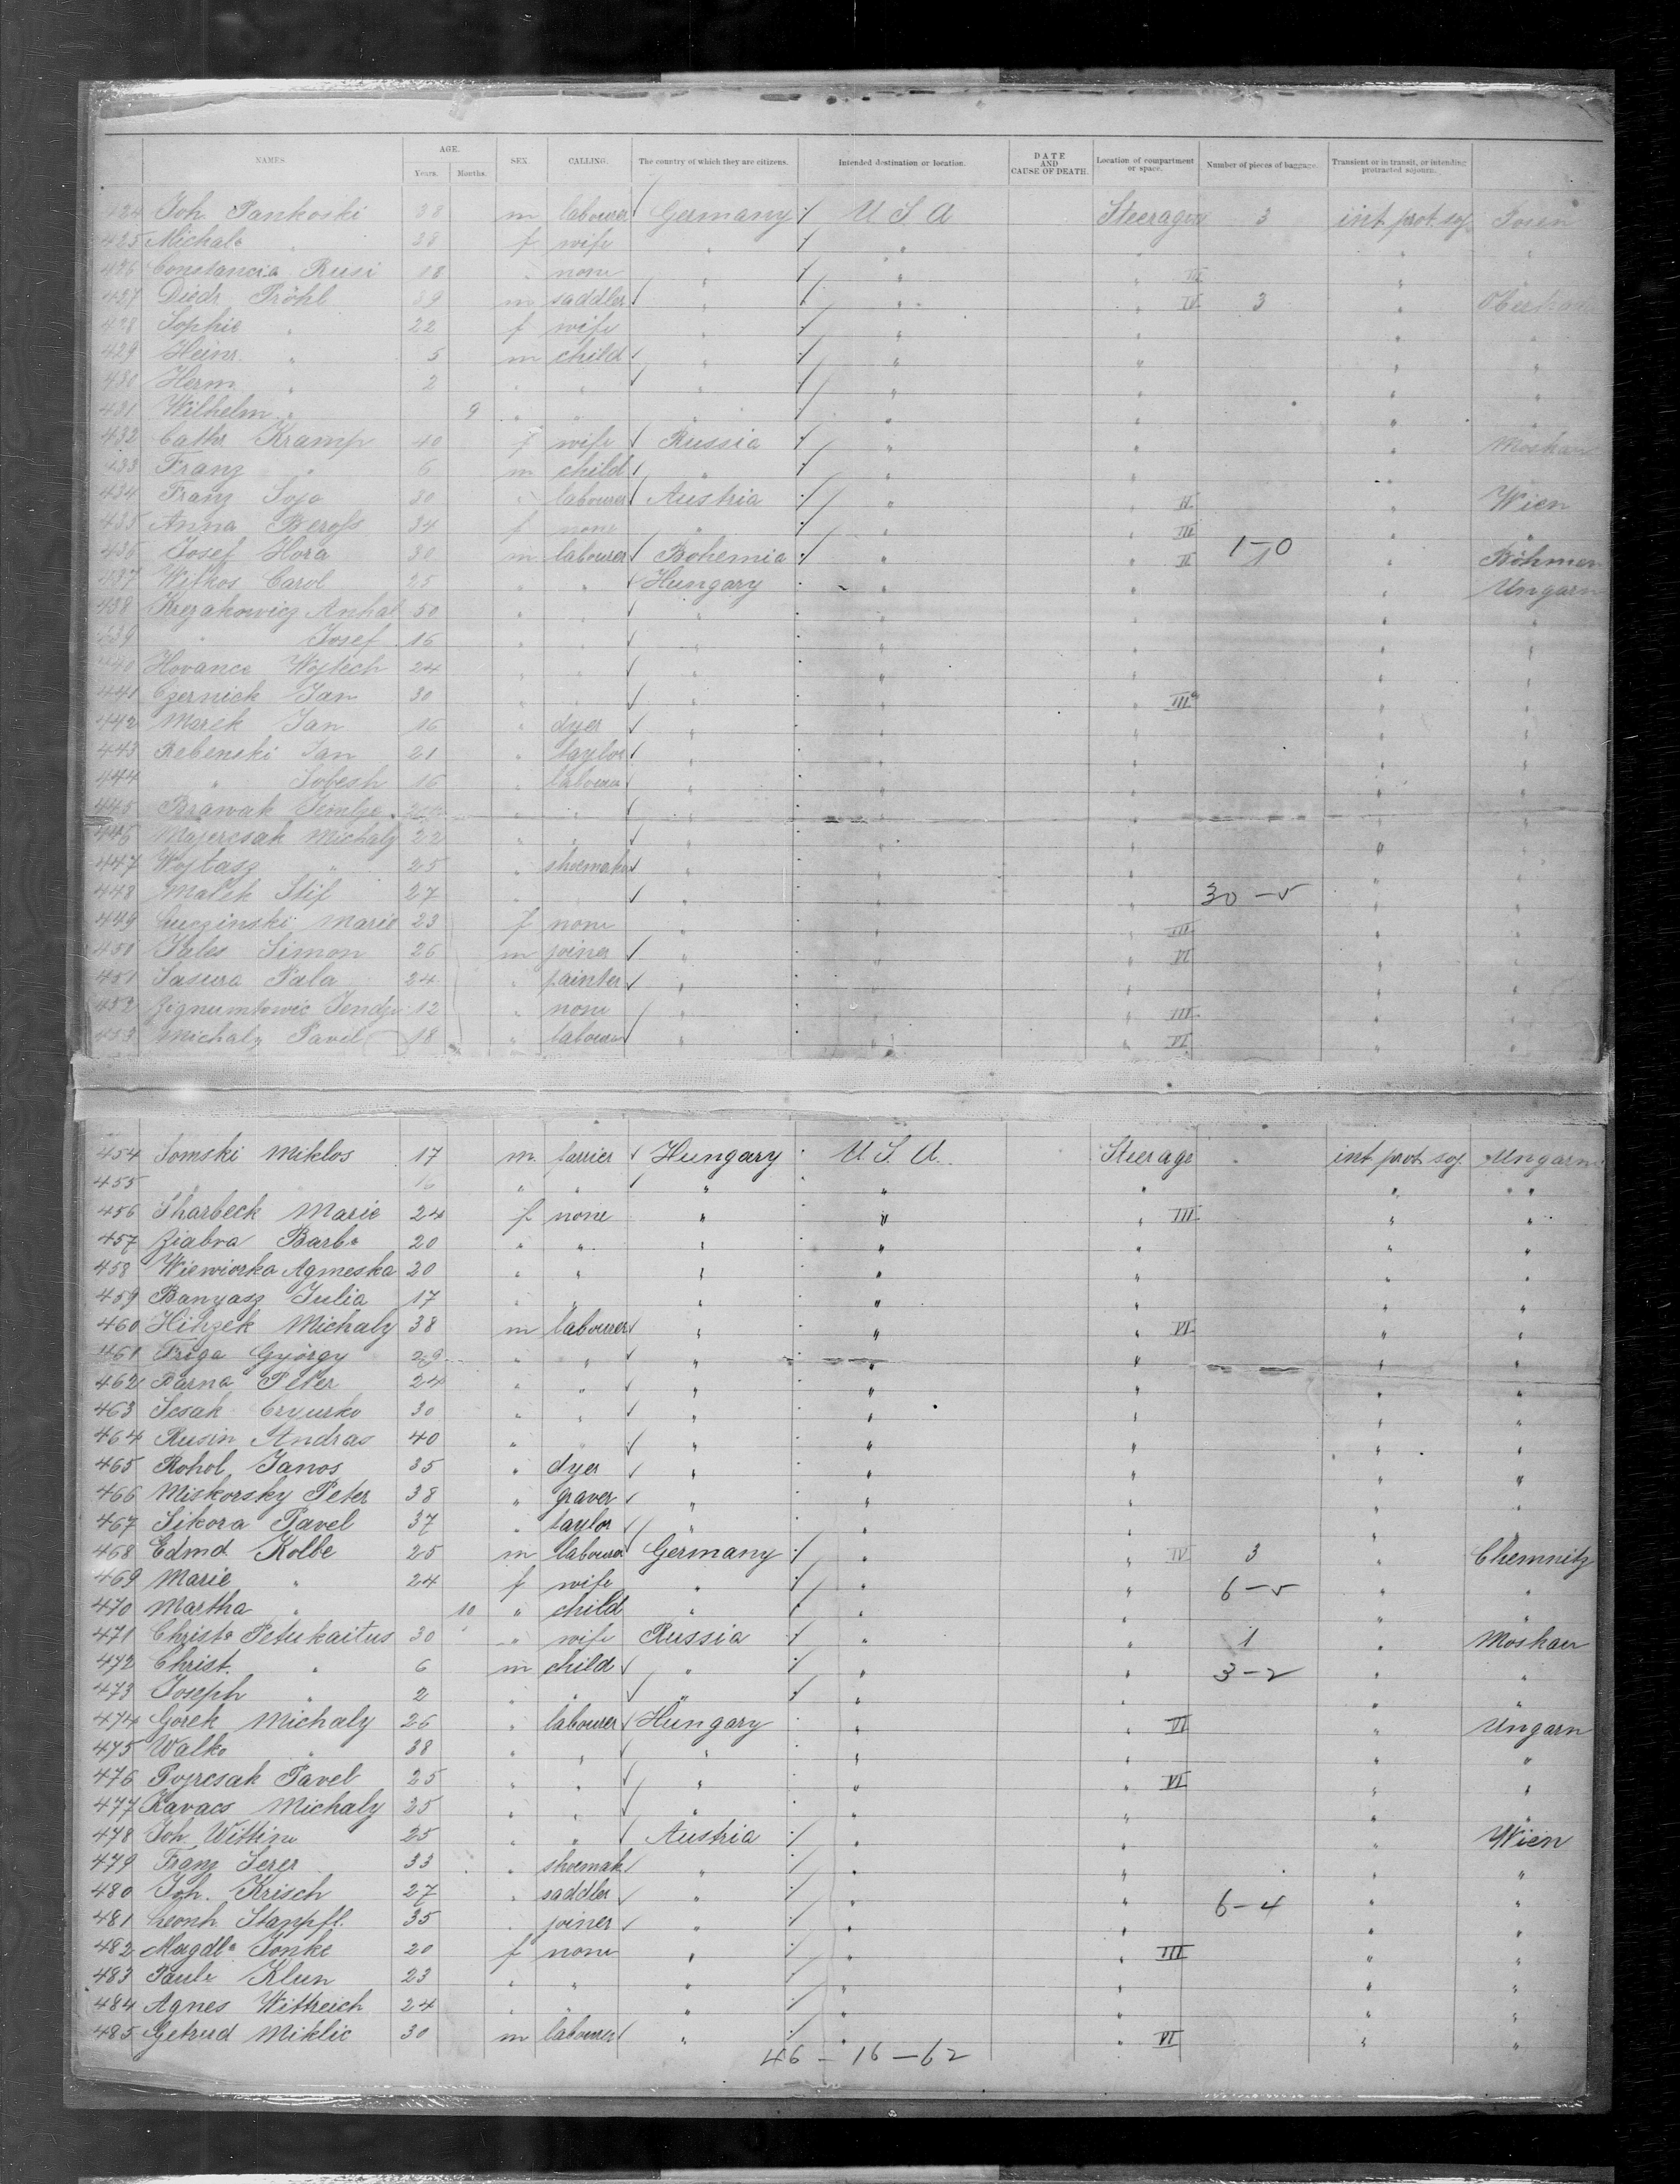 NAMES. AGE. Years. Months. SEX. CALLING. The country of which they are citizens. Intended destination or location. DATE AND CAUSE OF DEATH. Location of compartment or space. Number of pieces of baggage. Transient or in transit, or intending protracted sojourn.
424 Joh. Pankoski 38 m labourer Germany U S A Steerage 3 int. prot. soj. Posen
425 Michal " 38 f wife " " " " "
426 Constancia Rusi 18 " none " " " III " "
427 Diedr. Pröhl 39 m saddler " " " IV 3 "
428 Sophie " 22 f wife " " " " "
429 Heinr. " 5 m child " " " " "
430 Herm. " 2 " " " " " " "
431 Wilhelm " 9 " " " " " " "
432 Cathr Kramp 40 f wife Russia " " " Moskau
433 Franz " 6 m child " " " "
434 Franz Soja 30 " labourer Austria " " VI " Wien
435 Anna Beross 34 f none " " " III " "
436 Josef Hora 30 m labourer Bohemia " " VI 1-0 1 " Böhmen
437 Witkos Carol 25 " " Hungary " " " Ungarn
438 Krezakowicz 50 " " " " " " "
439 " Josef 16 " " " " " " "
440 Hovance Wojtech 24 " " " " " " "
441 Czernick Jan 30 " " " " " III " "
442 Marek Jan 16 " dyer " " " " "
443 Rebenski Jan 21 " taylor " " " " "
444 " 16 " labourer " " " " "
445 Brawak " " " " " " "
446 Majercsak Michaly 22 " " " " " " "
447 Wojtasz " 25 " shoemaker " " " " "
448 Malek Stif 27 " " " " " 30-5 " "
449 Luczinski Marie 23 f none " " " III " "
450 Jales Simon 26 m joiner " " " VI " "
451 Sasura Pala 24 " painter " " " " "
452 12 " none " " " III " "
453 Michaly Pavel 18 " labourer " " " VI " "
454 Somski Miklos 17 m. farrier Hungary U. S. A. Steerage int. prot. soj. Ungarn
455 " " 16 " " " " " " "
456 Tharbeck Marie 24 f none " " " III " "
457 Ziabra Barb. 20 " " " " " " "
458 Wiewiorka Agmeska 20 " " " " " " "
459 Banyasz Julia 17 " " " " " " "
460 Hihzek Michaly 38 m labourer " " " VI " "
461 Friga György 29 " " " " " " "
462 Barna Peter 24 " " " " " " "
463 Sesak 30 " " " " " " "
464 Rusin Andras 40 " " " " " " "
465 Rohol Janos 35 " dyer " " " " "
466 Miskorsky Peter 38 " graver " " " " "
467 Sikora Pavel 37 " taylor " " " " "
468 Edmd Kolbe 25 m labourer Germany " " IV 3 " Chemnitz
469 Marie " 24 f wife " " " 6-5 " "
470 Martha " 10 " child " " " " "
471 Christ. Petukaitus 30 " wife Russia " " 1 " Moskau
472 Christ. " 6 m child " " " 3-2 " "
473 Joseph " 2 " " " " " " "
474 Gorek Michaly 26 " labourer Hungary " " VI " Ungarn
475 Walko " 38 " " " " " " "
476 Pojrcsak Pavel 25 " " " " " VI " "
477 Kavacs Michaly 25 " " " " " " "
478 Joh. Wittine 25 " " Austria " " " Wien
479 Franz Serer 33 " shoemak " " " " "
480 Joh. Krisch 27 " saddler " " " 6-4 " "
481 Leonh. Stampfl. 35 " joiner " " " " "
482 Magdl. Jonke 20 f none " " " III " "
483 Paule Klun 23 " " " " " " "
484 Agnes Wittreich 24 " " " " " " "
485 Getrud Miklic 30 m labourer " " " VI " "
46 - 16 - 62